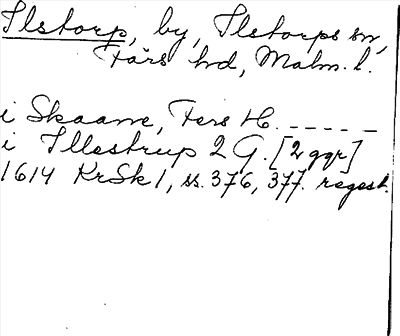 Ilstorp, by, Ilstorps sn,
Färs hd, Malm. l.
i Skaane, Fers H. _ _ _ _ _
i Illestrup 2 G. [2 ggr]
1614 KrSk 1, ss. 376, 377. regest.